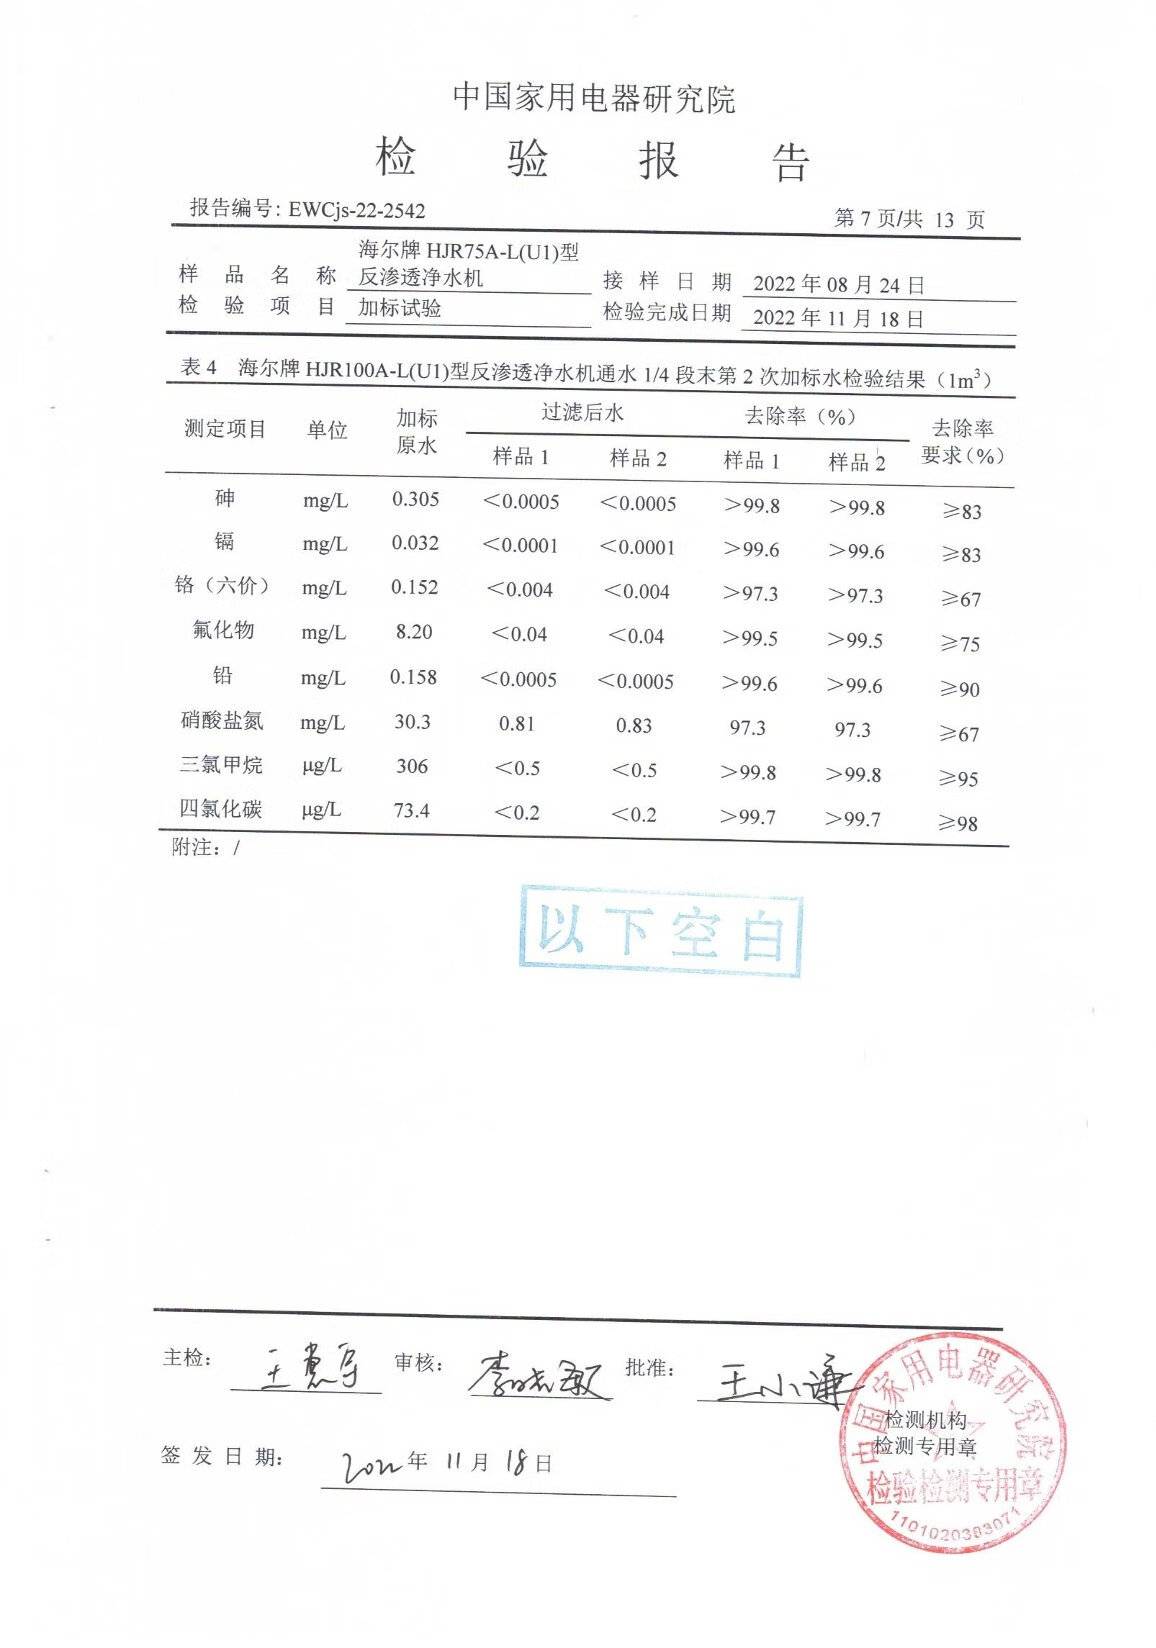 中国家用电器研究院
检 验 报 告
报告编号：EWCjs-22-2542
第 7 页/共 13 页
样品名称 海尔牌 HJR75A-L(U1)型反渗透净水机 接样日期 2022 年 08 月 24 日
检验项目 加标试验 检验完成日期 2022 年 11 月 18 日
表 4 海尔牌 HJR100A-L(U1)型反渗透净水机通水 1/4 段末第 2 次加标水检验结果（1m³）
测定项目 单位 加标原水 过滤后水 去除率（%） 去除率要求(%)
样品 1 样品 2 样品 1 样品 2
砷 mg/L 0.305 ＜0.0005 ＜0.0005 ＞99.8 ＞99.8 ≥83
镉 mg/L 0.032 ＜0.0001 ＜0.0001 ＞99.6 ＞99.6 ≥83
铬（六价） mg/L 0.152 ＜0.004 ＜0.004 ＞97.3 ＞97.3 ≥67
氟化物 mg/L 8.20 ＜0.04 ＜0.04 ＞99.5 ＞99.5 ≥75
铅 mg/L 0.158 ＜0.0005 ＜0.0005 ＞99.6 ＞99.6 ≥90
硝酸盐氮 mg/L 30.3 0.81 0.83 97.3 97.3 ≥67
三氯甲烷 μg/L 306 ＜0.5 ＜0.5 ＞99.8 ＞99.8 ≥95
四氯化碳 μg/L 73.4 ＜0.2 ＜0.2 ＞99.7 ＞99.7 ≥98
附注：/
以下空白
主检： 审核： 批准： 王小谦
签发日期： 2022年 11 月 18 日
中国家用电器研究院
检测机构
检测专用章
检验检测专用章
1101020383071